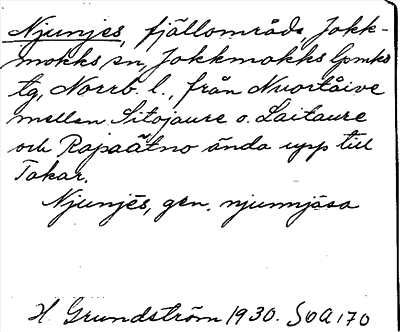 Njunjes, fjällområde, Jokk-
mokks sn, Jokkmokks lpmks
tg, Norrb. l., från Nuortåive
mellan Sitojaure o. Laitaure
och Rapaätno ända upp till
Takar.
Njunjēs, gen. njunnjása
H. Grundström 1930. SOA 170